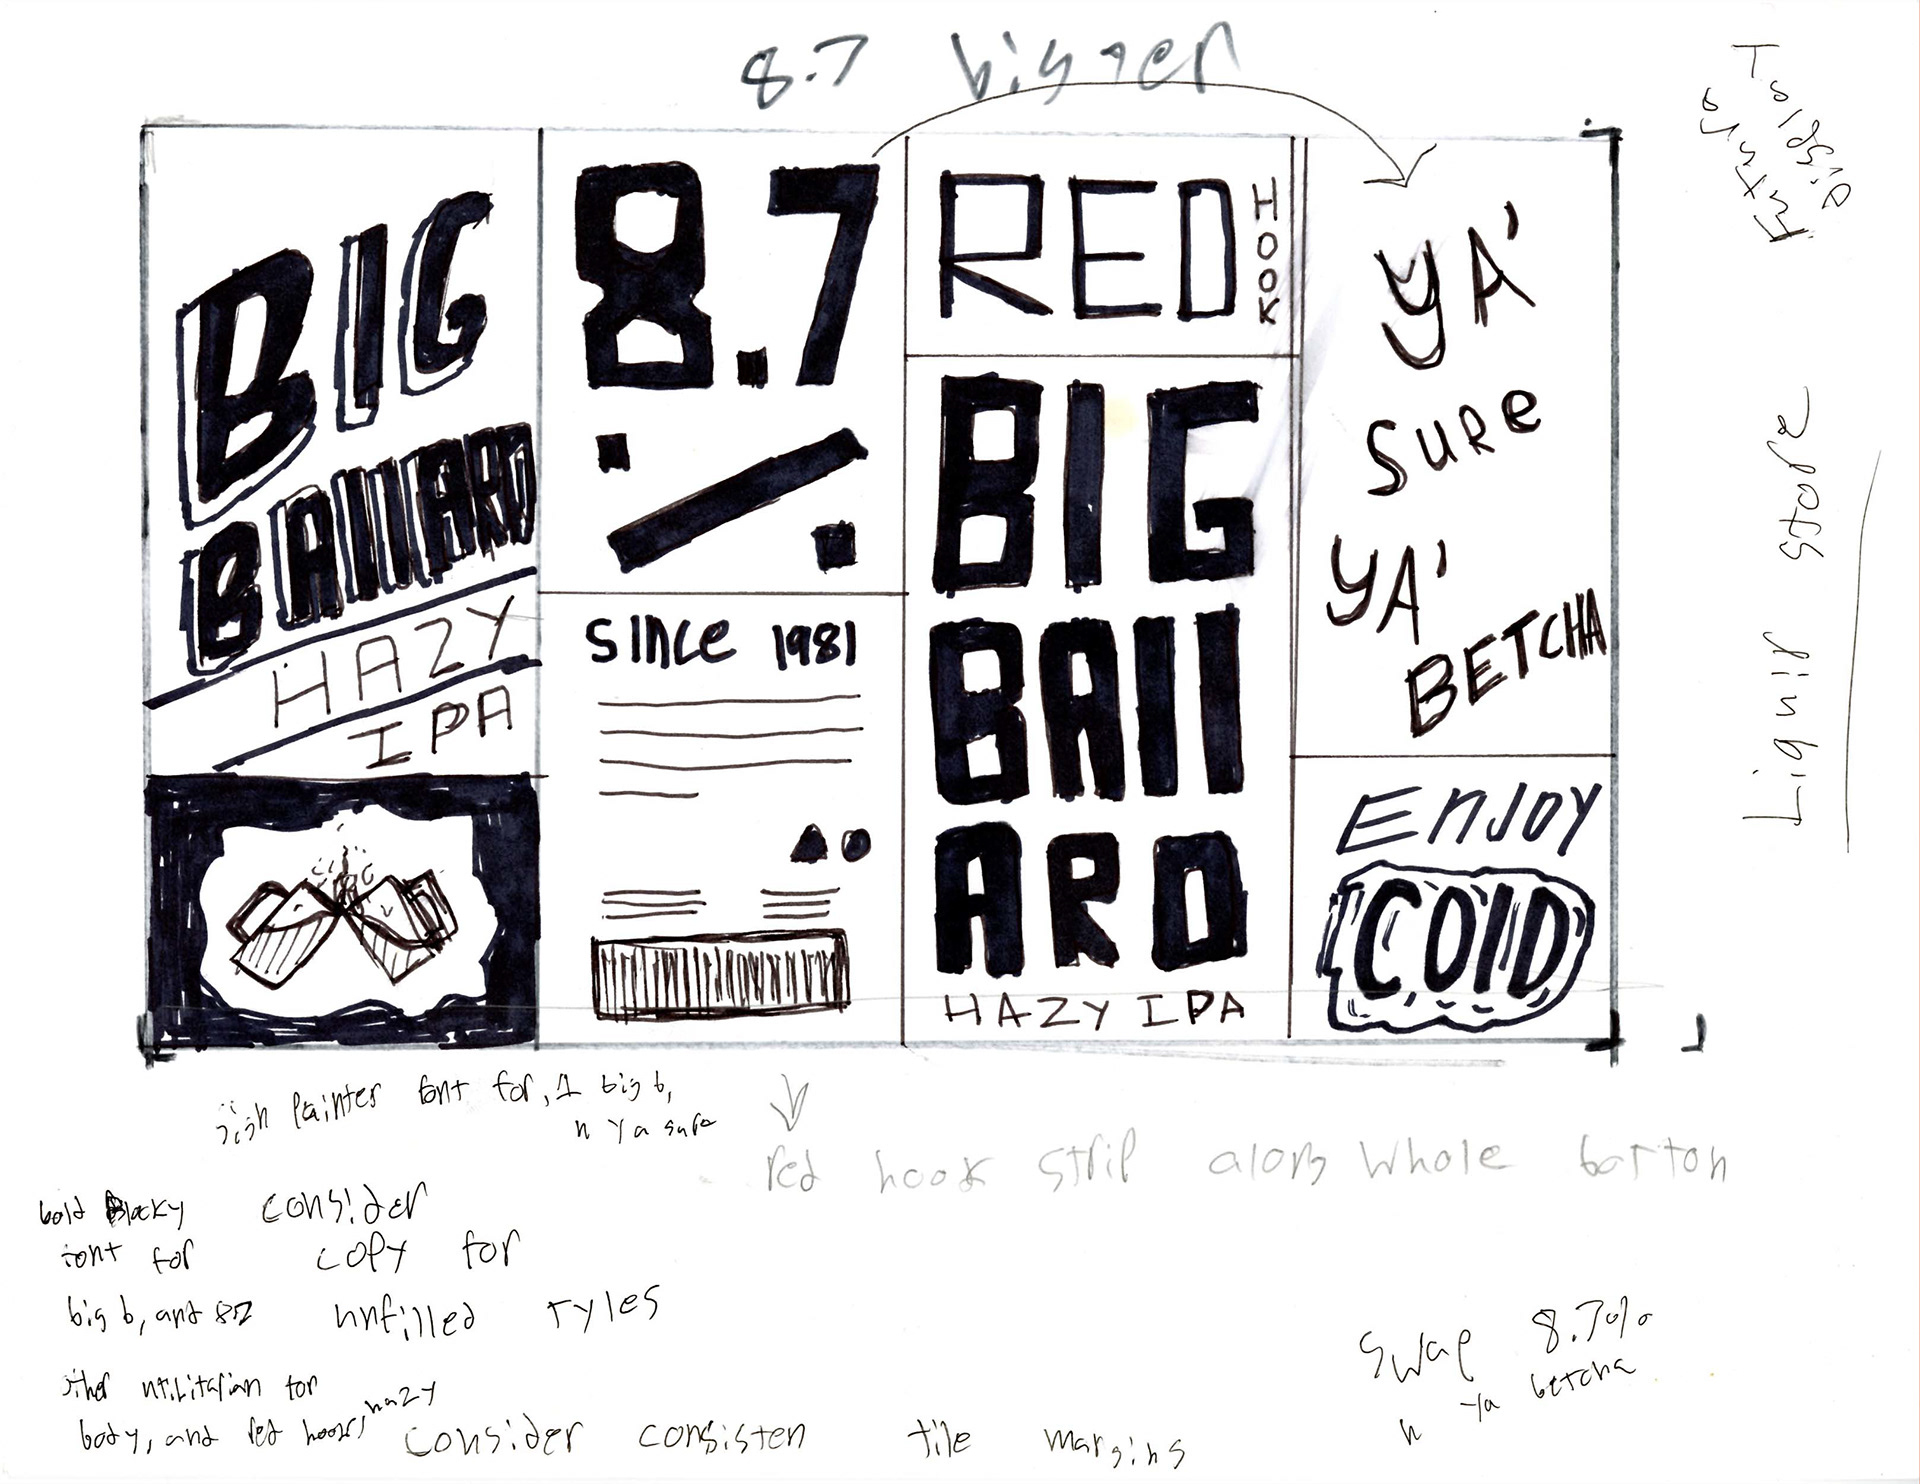 8.7 bigger
Futura
Display
T
BIG
BAllARD
HAZY
IPA
8.7
%
SINCE 1981
RED
HOOK
BIG
BAll
ARD
HAZY IPA
YA'
SURE
YA'
BETCHA
ENJOY
COlD
Liquir store
sign Painter font for, 1 big b,
n Ya sure
red hook strip along whole bottom
bold Blocky
font for
big b, and 8.7
consider
copy for
unfilled tyles
other utilitarian for
body, and red hook, hazy
consider consisten tile margins
swap 8.7%
n ya betcha